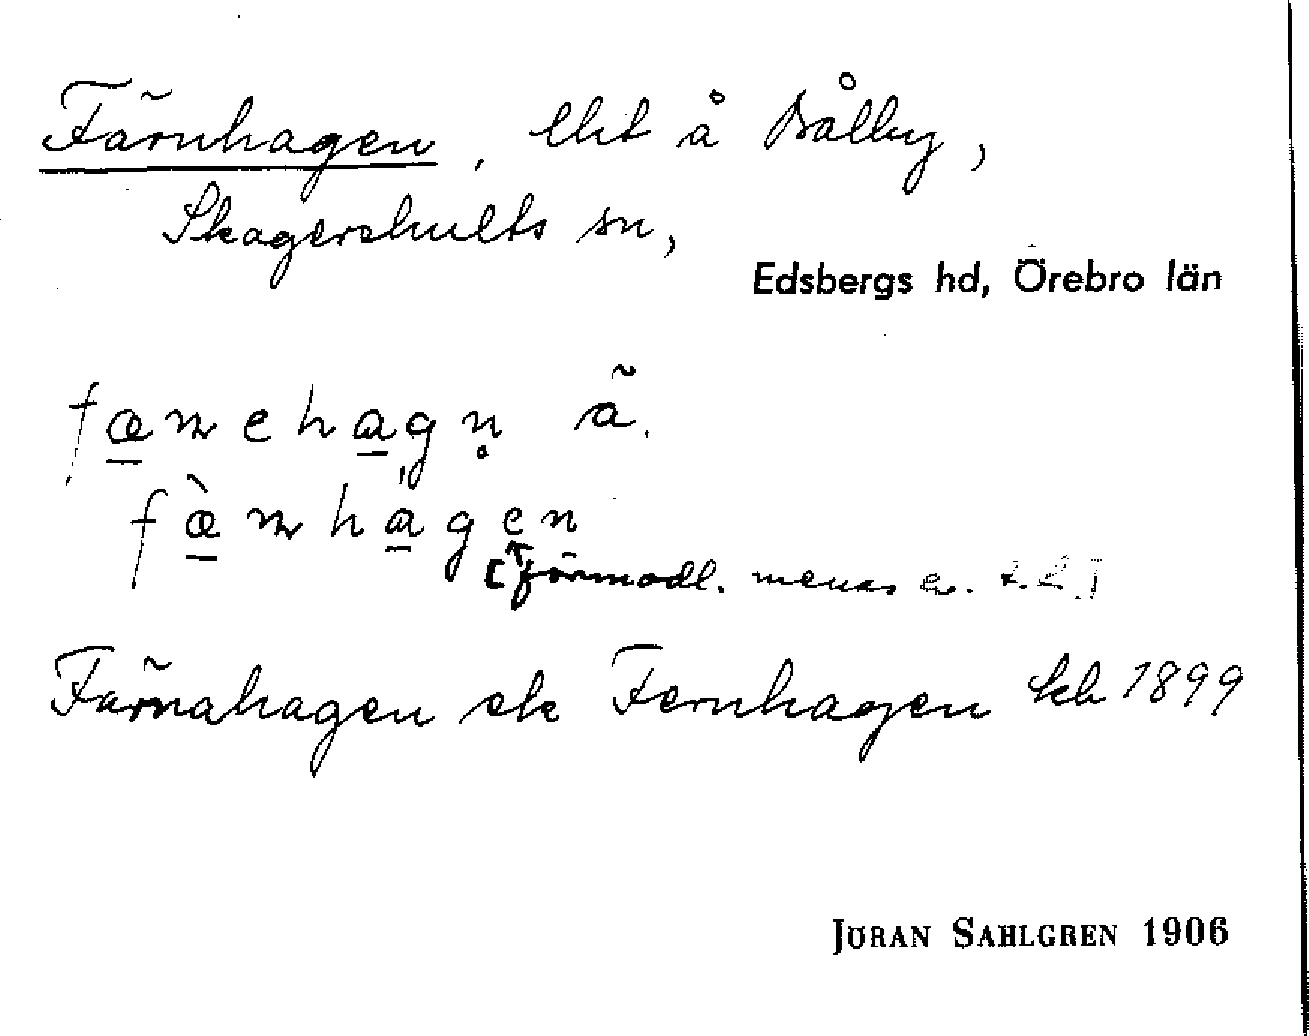 Färnhagen, lht å Bålby,
Skagershults sn,
Edsbergs hd, Örebro län
fæṇehagn̥ ã.
fæ̀ṇhagen
[förmodl. menas e. 
Färnahagen ek Fernhagen kb 1899
JÖRAN SAHLGREN 1906